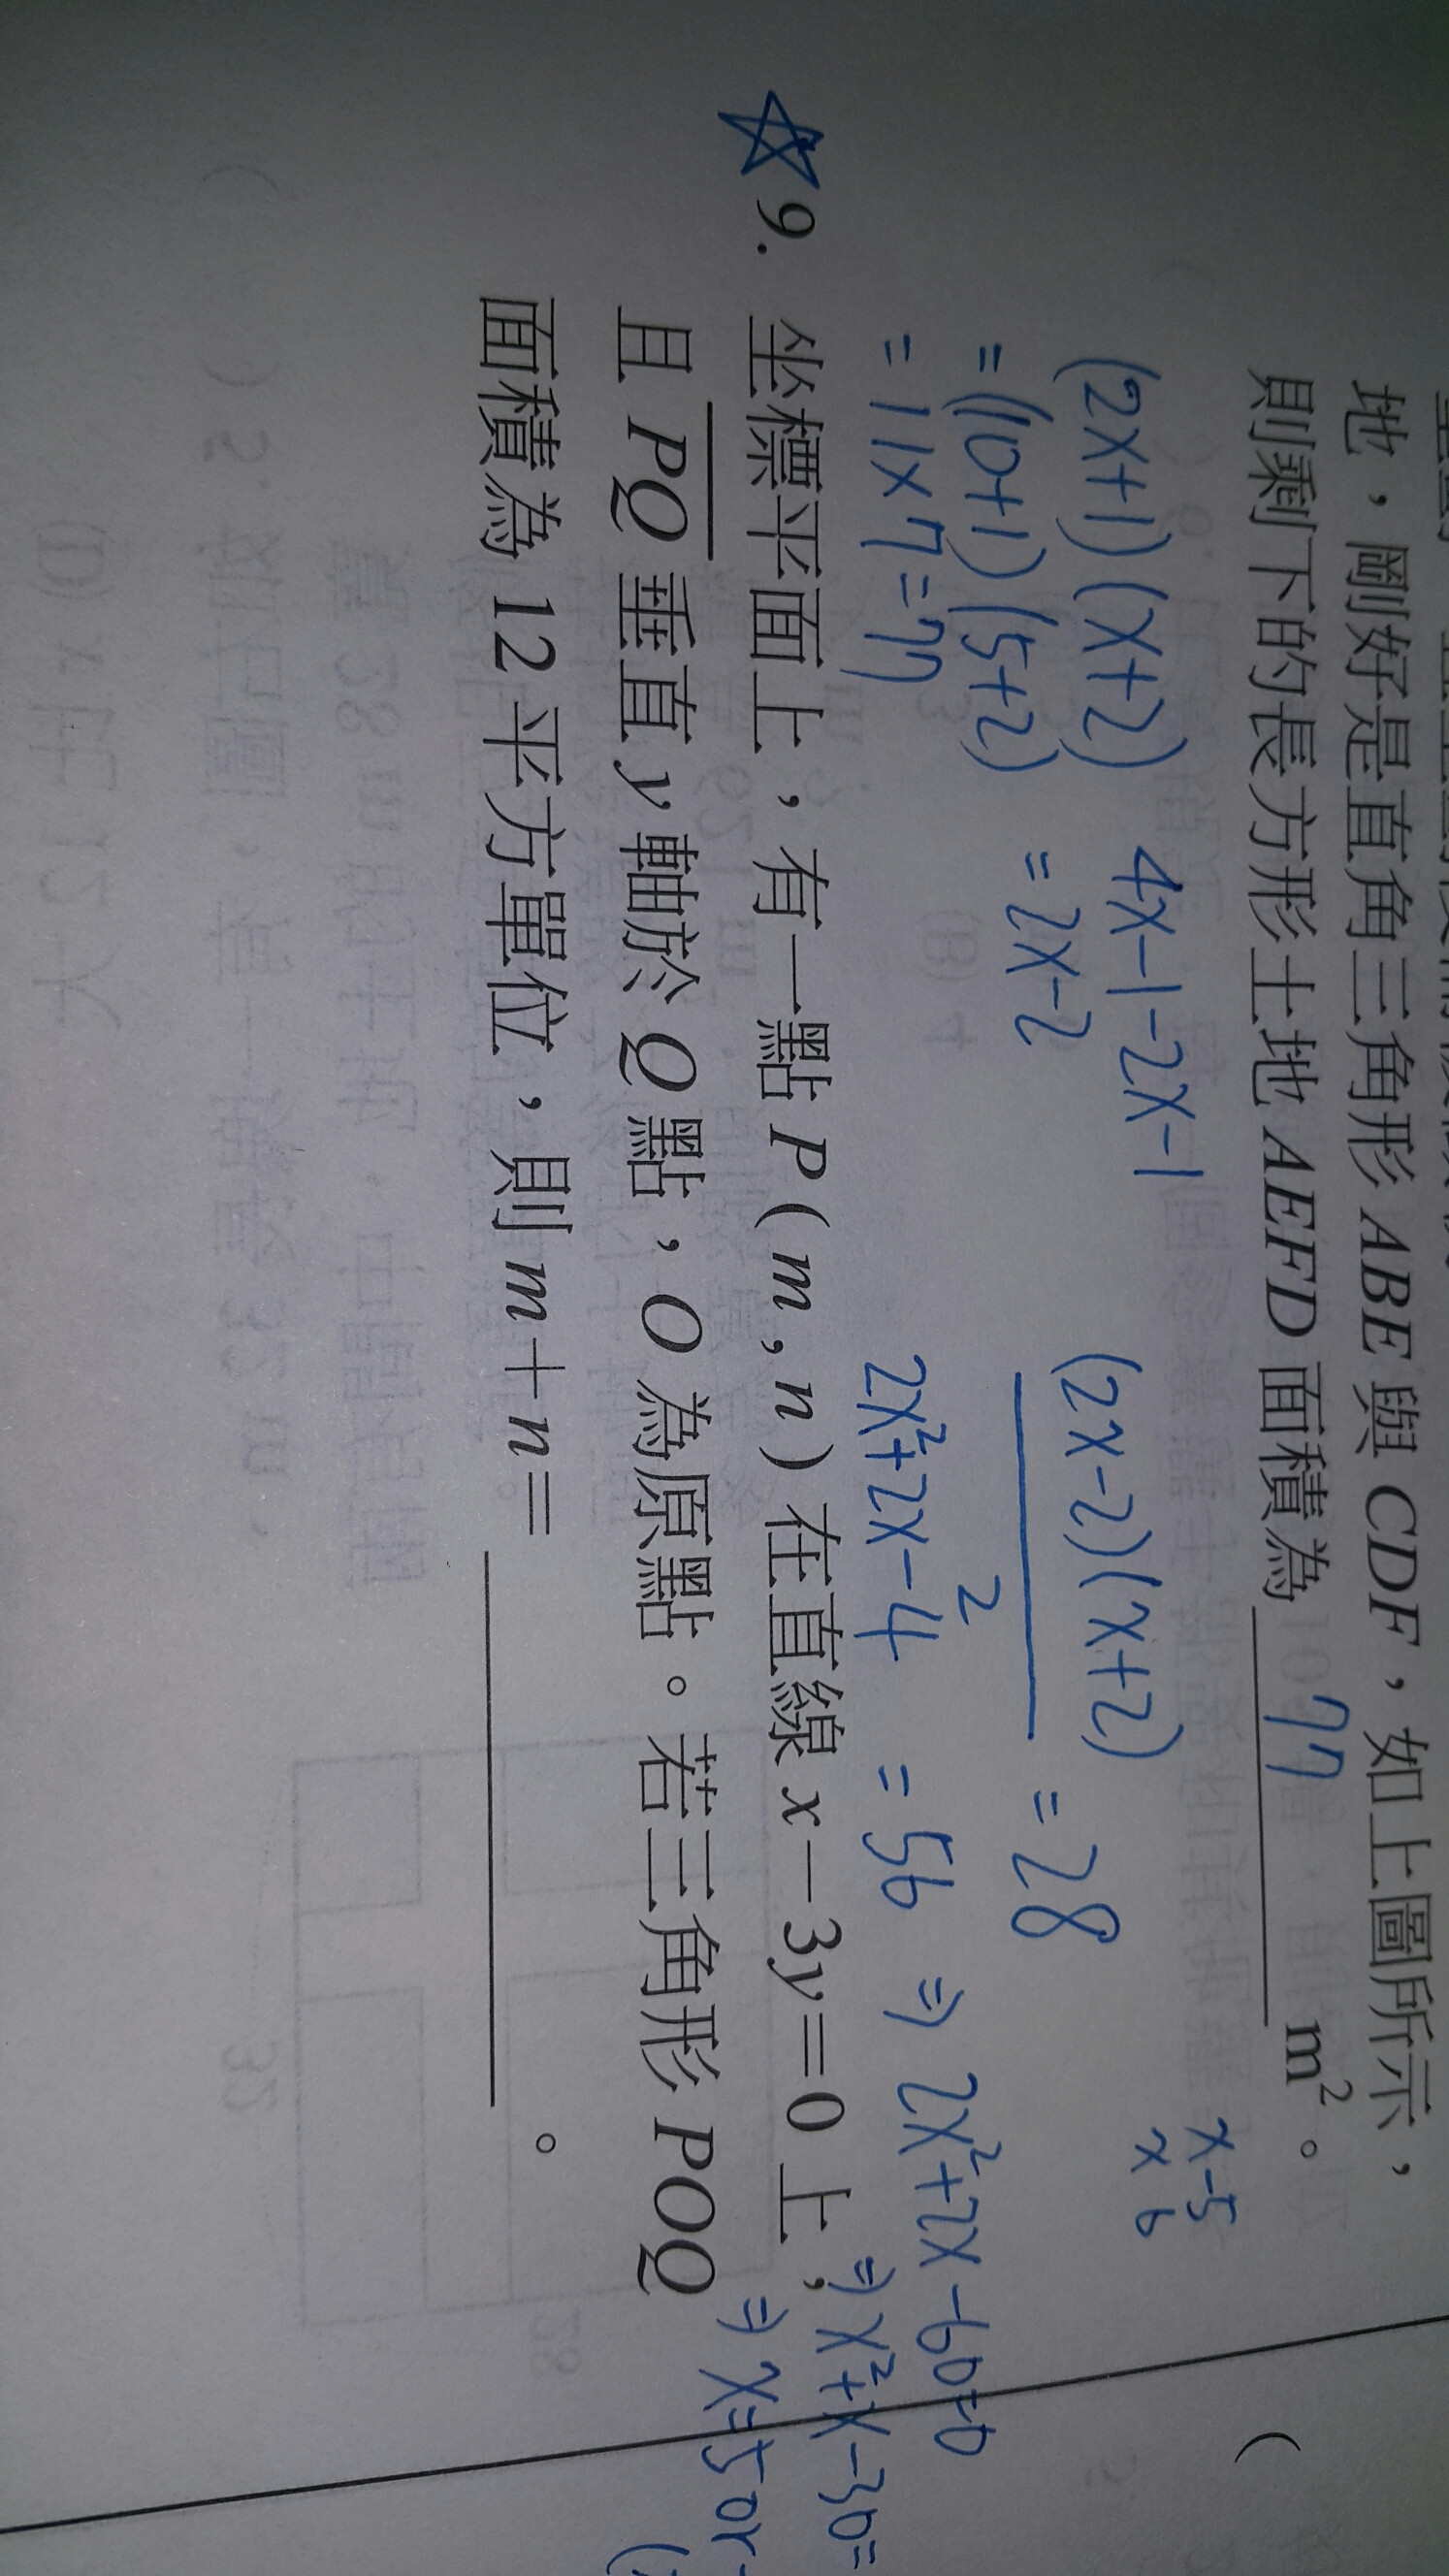 地，剛好是直角三角形 ABE 與 CDF，如上圖所示，
則剩下的長方形土地 AEFD 面積為 77 m²。
x -5
x 6
(2x+1)(x+2) 4x-1-2x-1 (2x-2)(x+2)
= (10+1)(5+2) = 2x-2 2 = 28
= 11×7=77 2x²+2x-4 = 56 ⇒ 2x²+2x-60=0
⇒ x²+x-30=
⇒ x=5 or
☆9. 坐標平面上，有一點 P(m,n) 在直線 x-3y=0 上，
且 PQ 垂直 y 軸於 Q 點，O 為原點。若三角形 POQ
面積為 12 平方單位，則 m+n=＿＿＿＿。
(